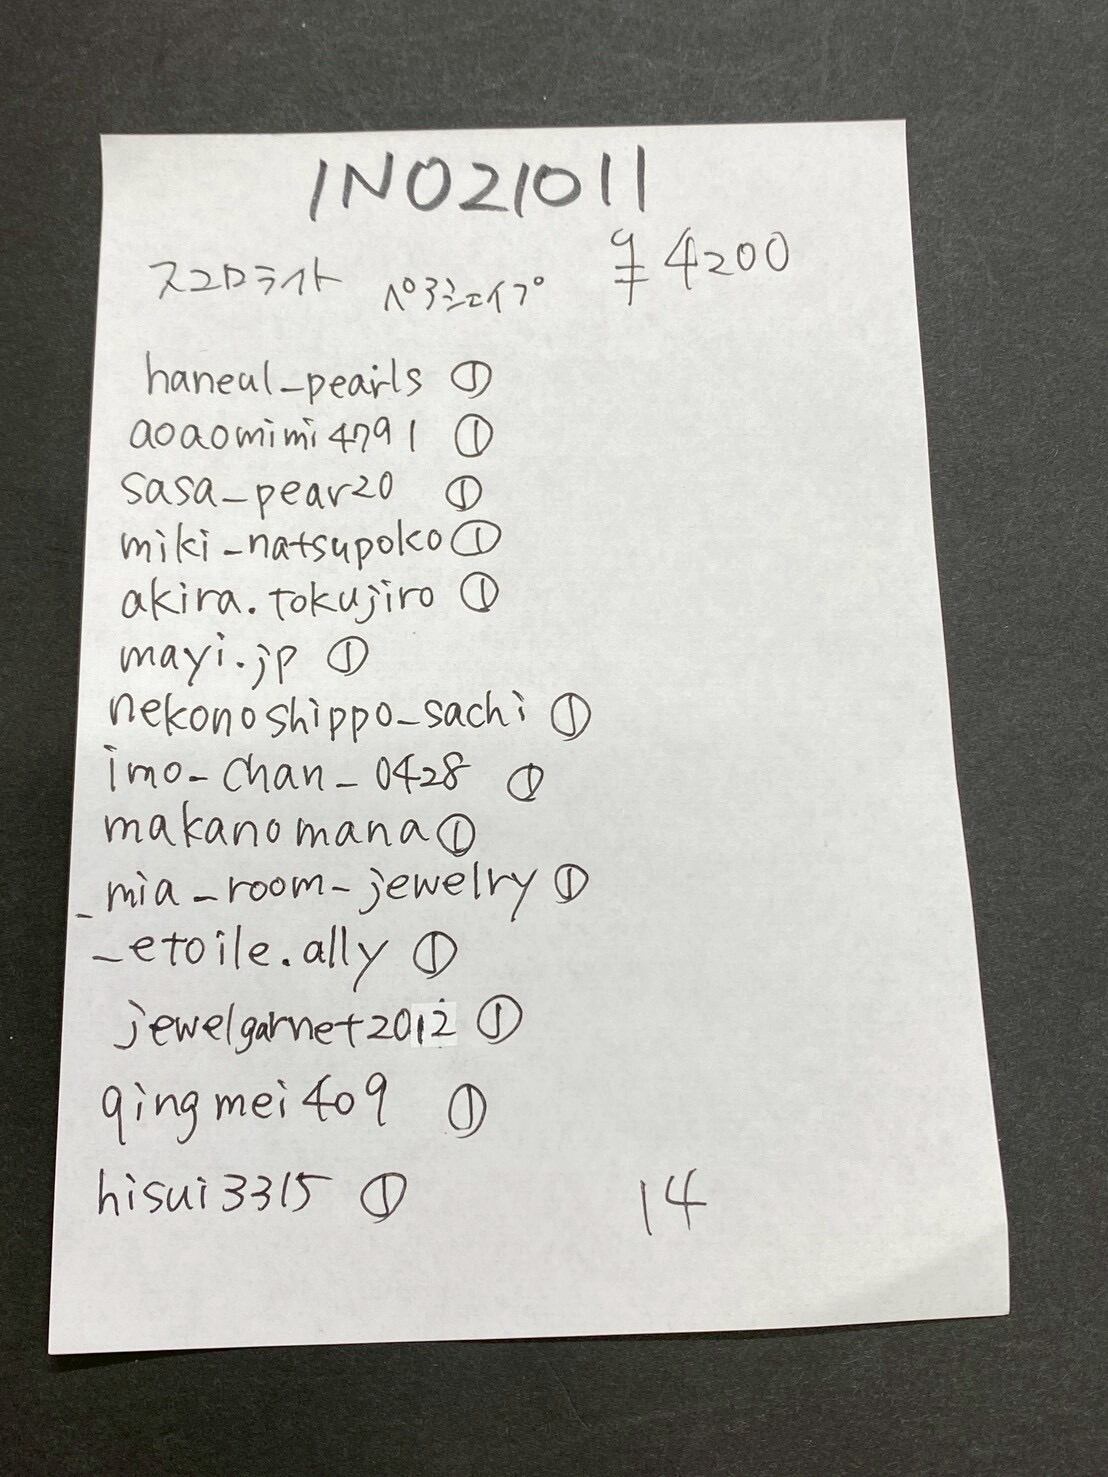 INO21011
スコロライト ペアシェイプ ¥4200
haneul_pearls ①
aoaomimi4791 ①
sasa_pear20 ①
miki_natsupoko ①
akira.tokujiro ①
mayi.jp ①
nekonoshippo_sachi ①
imo_chan_0428 ①
makanomana ①
_mia_room_jewelry ①
_etoile.ally ①
jewelgarnet2012 ①
qingmei409 ①
hisui3315 ①
14